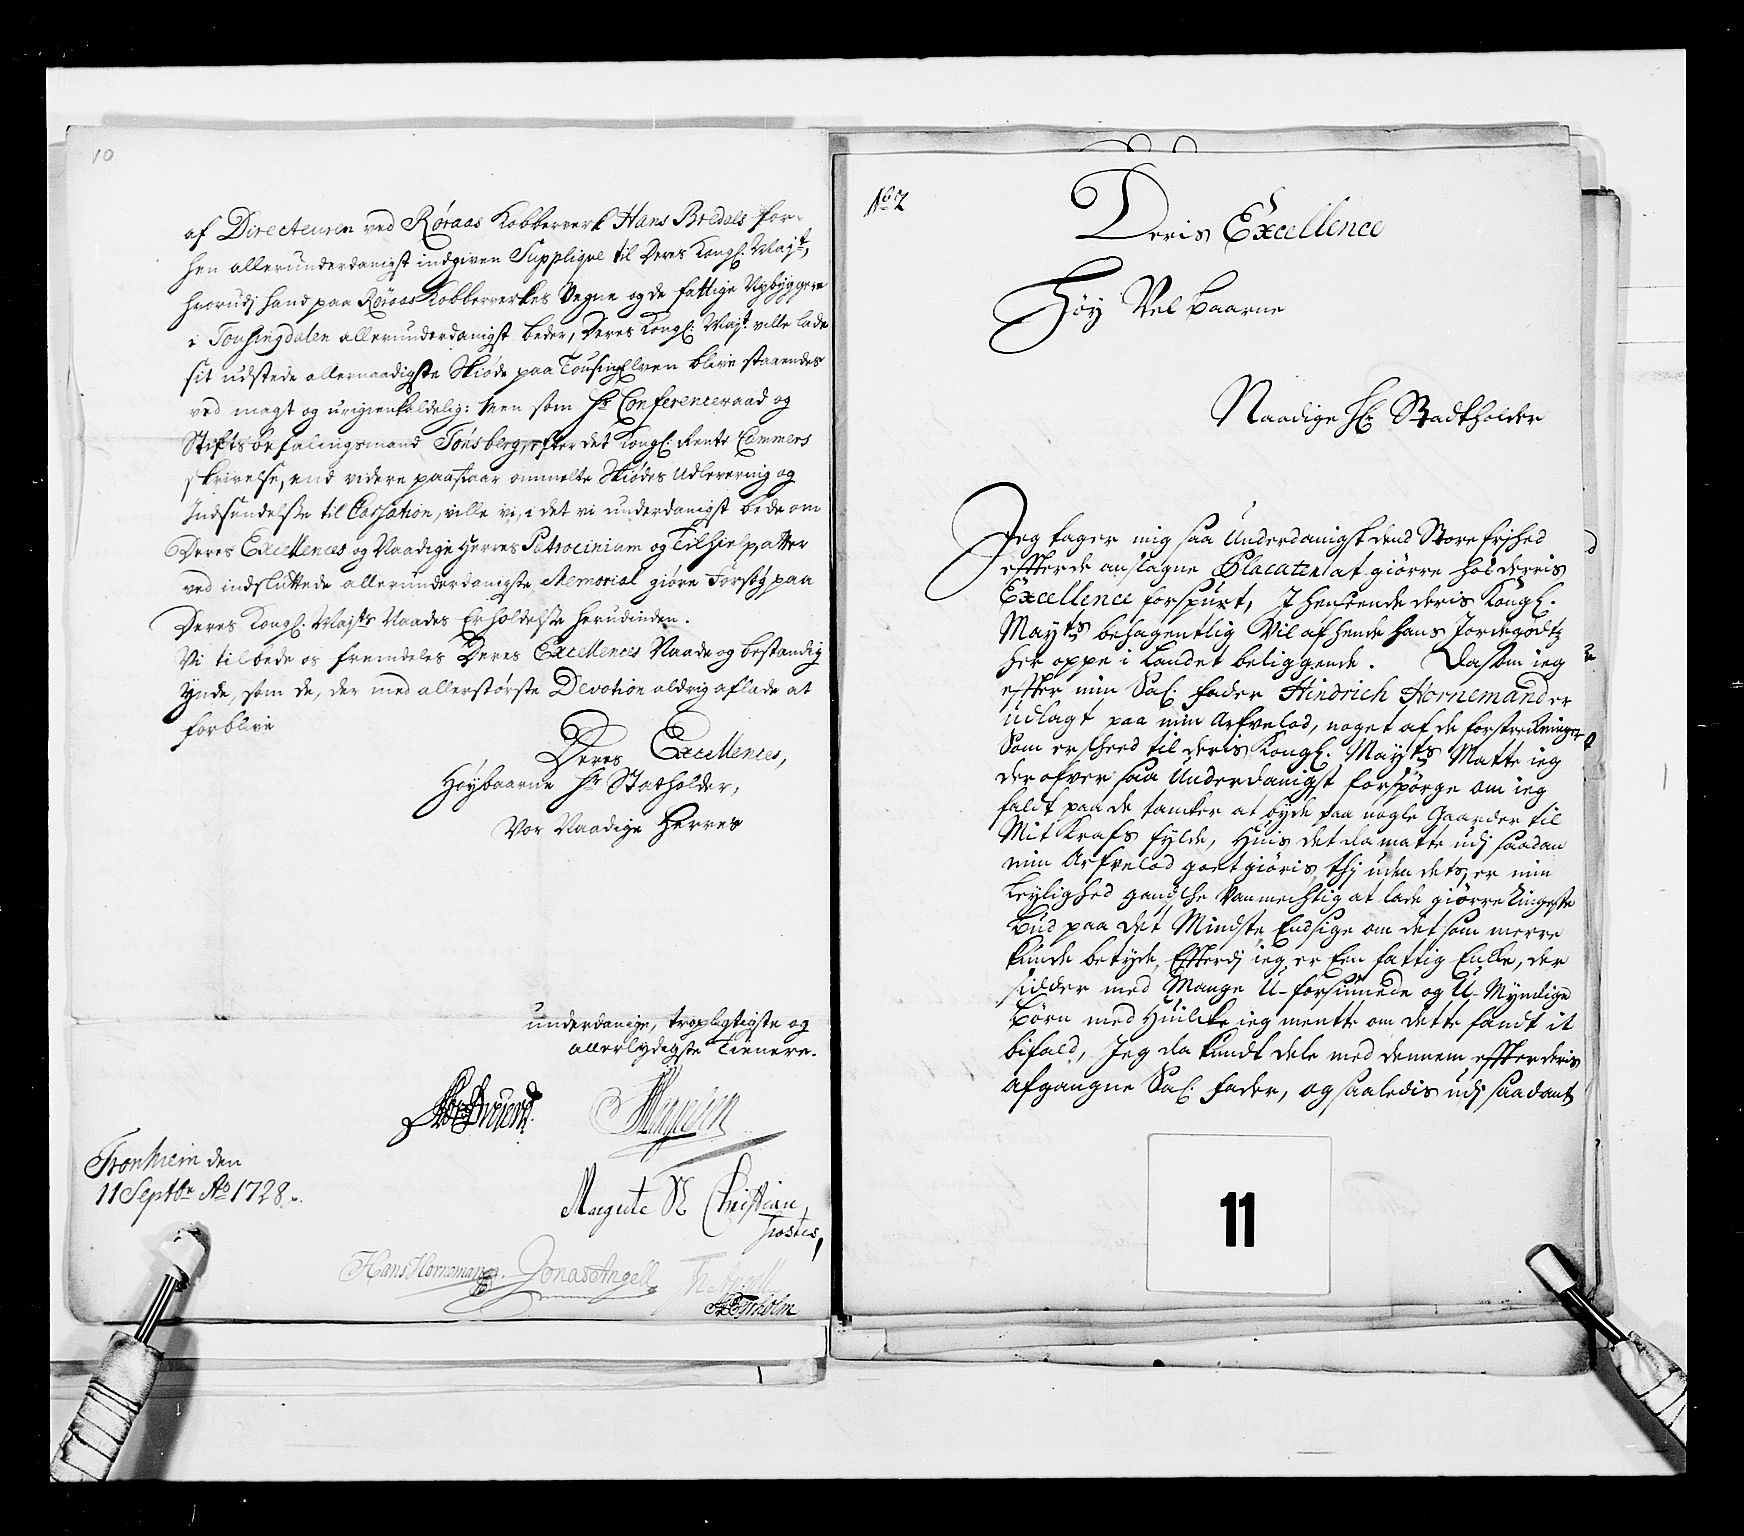 10
af Directeuren ved Røraas Kobberverk Hans Bredals for-
hen allerunderdanigst indgiven Supplique til Deres Kongl: Majt,
hvorudj hand paa Røraas Kobberverkes Vegne og de fattige Nybyggere
i Tousingdalen allerunderdanigst beder, Deres Kongl: Majt: ville lade
sit udstede allernaadigste Skiøde paa Tousing Elven blive staaendes
ved magt og urygienkaldelig: Men som Hr Conferenceraad og
Stiftsbefalingsmand Tønsberg, efter det Kongl: Rente Cammers
skrivelse, end videre paastaar ommelte Skiødes Udlevering og
Indsendelse til Cassation, ville vi, i det vi underdanigst bede om
Deres Excellences og Naadige Herres Patrocinium og Tilhielp, atter
ved indsluttede allerunderdanigste Memorial giøre Forsøg paa
Deres Kongl: Majts Naades Erholdelse herudinden.
Vi tilbede os fremdeles Deres Excellences Naade og bestandig
Ynde, som de, der med allerstørste Devotion aldrig aflade at
forblive
Deres Excellences,
Høybaarne Hr Statholder,
Vor Naadige Herres
underdanige, tropligtigste og
allerlydigste Tienere.
Tronhiem den
11 Septbr Ao 1728.
Margrete Christian
Hans Hornemann. Jonas Angell Th: Angell
No 2
Deris Excellence
Høy Vel baarne
Naadige Hr Stadtholder
Jeg tager mig saa Underdanigst dend Store frjhed
effter de anslagne Placaten at giørre hos derris
Excellence forspurt, J henseende deris Kongl.
Mayts behagentlig Vil afhende hans Jordegodtz
her oppe i Landet beliggende. Da som ieg
effter min Sal: fader Hindrich Hornemand er
udlagt paa min Arfvelod, noget af de forstreckninger
Som er skeed til deris Kongl. Mayts Matte ieg
der ofver saa Underdanigst forspørge om ieg
faldt paa de tancker at byde paa nogle Gaarder til
Mit Krafs fylde, Huis det da matte udj saadan
min Arfvelod goet giøris, thj uden dets, er min
Leylighed gandske Vanmechtig at lade giørre Ringeste
Bud paa det Mindste, Endsige om det som merre
kunde betyde, Efterdj ieg er Een fattig Enke, der
sidder med Mange U-forsiunede og U-Myndige
Børn med Huilcke ieg mente om dette fandt it
bifald, Jeg da kundt dele med dennem effter deris
afgangne Sal: fader, og saaledis udj saadant
11